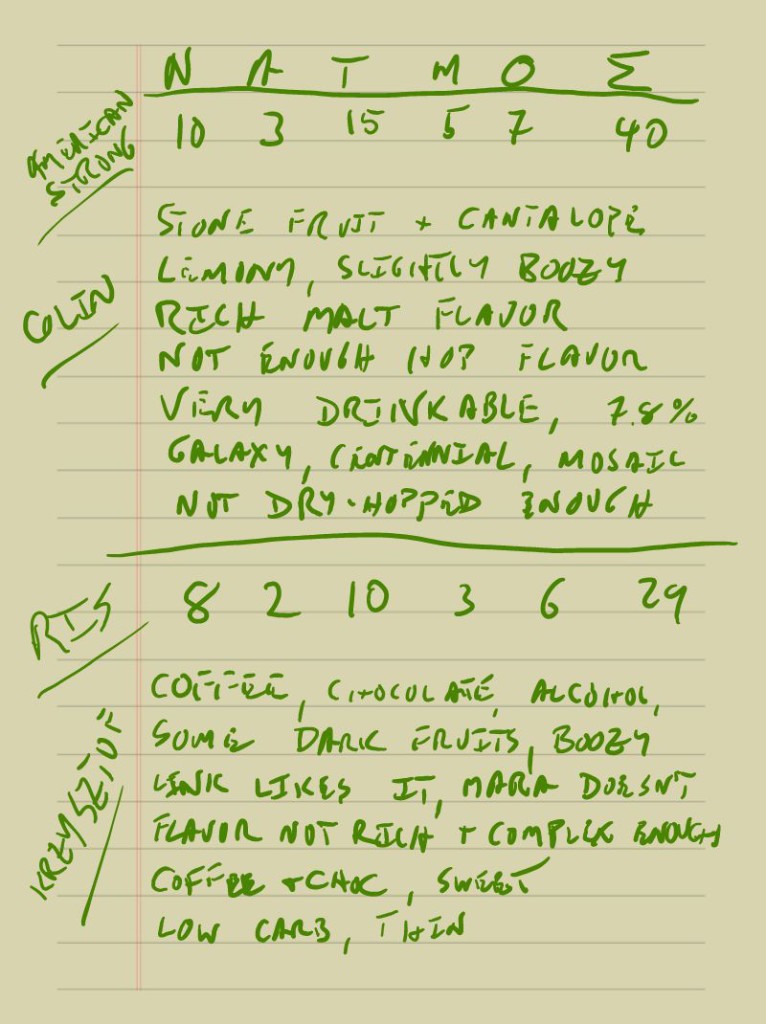 N A T M O Σ
AMERICAN STRONG
10 3 15 5 7 40
COLIN
STONE FRUIT + CANTALOPE
LEMONY, SLIGHTLY BOOZY
RICH MALT FLAVOR
NOT ENOUGH HOP FLAVOR
VERY DRINKABLE, 7.8%
GALAXY, CENTENNIAL, MOSAIC
NOT DRY-HOPPED ENOUGH
RIS
8 2 10 3 6 29
KRZYSZTOF
COFFEE, CHOCOLATE, ALCOHOL,
SOME DARK FRUITS, BOOZY
LINK LIKES IT, MARA DOESN'T
FLAVOR NOT RICH + COMPLEX ENOUGH
COFFEE + CHOC, SWEET
LOW CARB, THIN